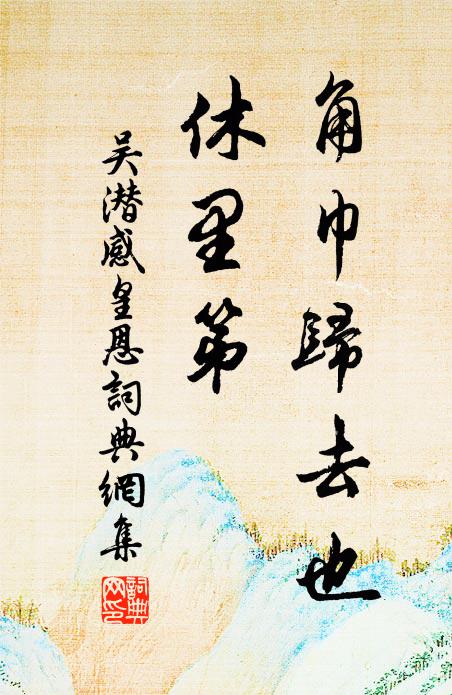 角巾歸去也
休里第
吴潜感皇恩詞典網集
詞典網印